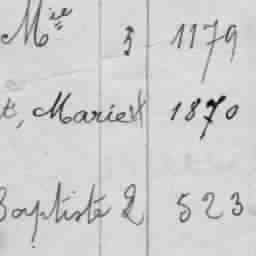 Mie 3 1179
Marie 1870
Baptiste 2 523